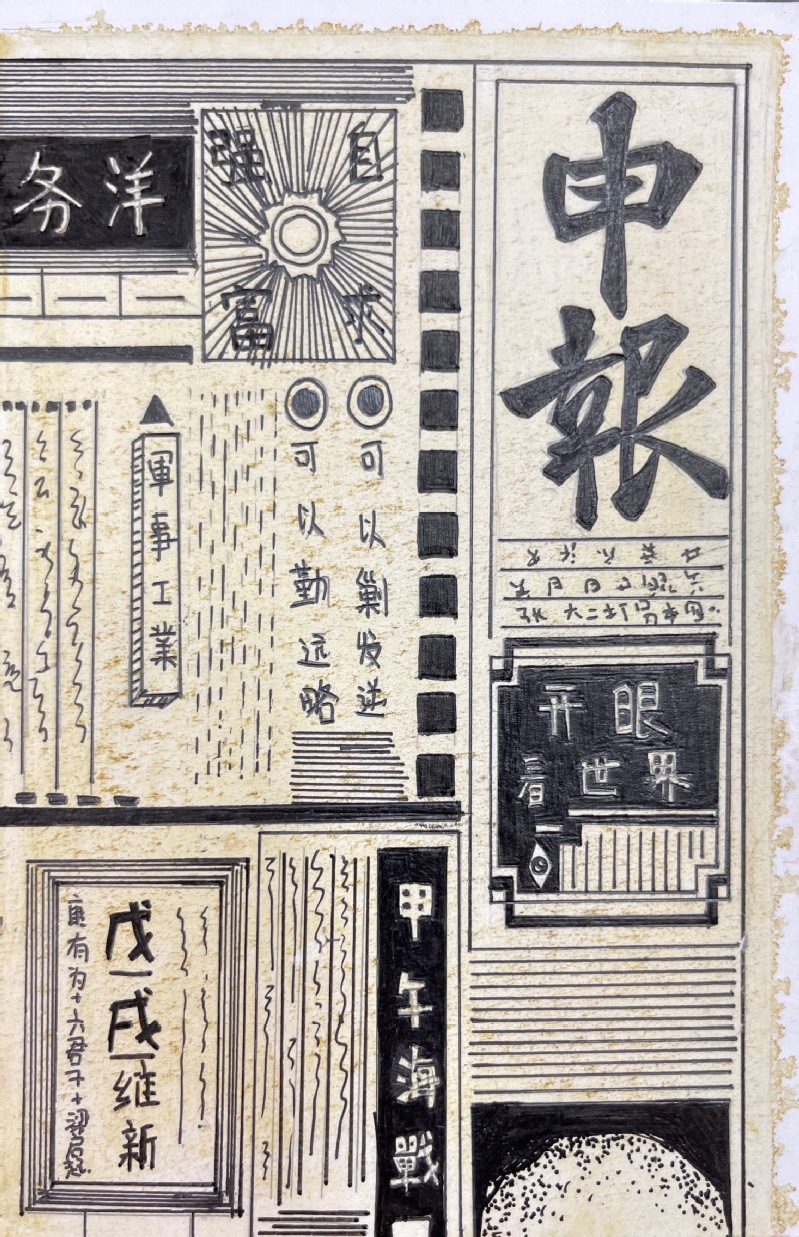 申報
开眼
看世界
自强
求富
洋务
可以剿发逆
可以勤远略
軍事工業
甲午海戰
戊戌維新
康有为+六君子+梁启超